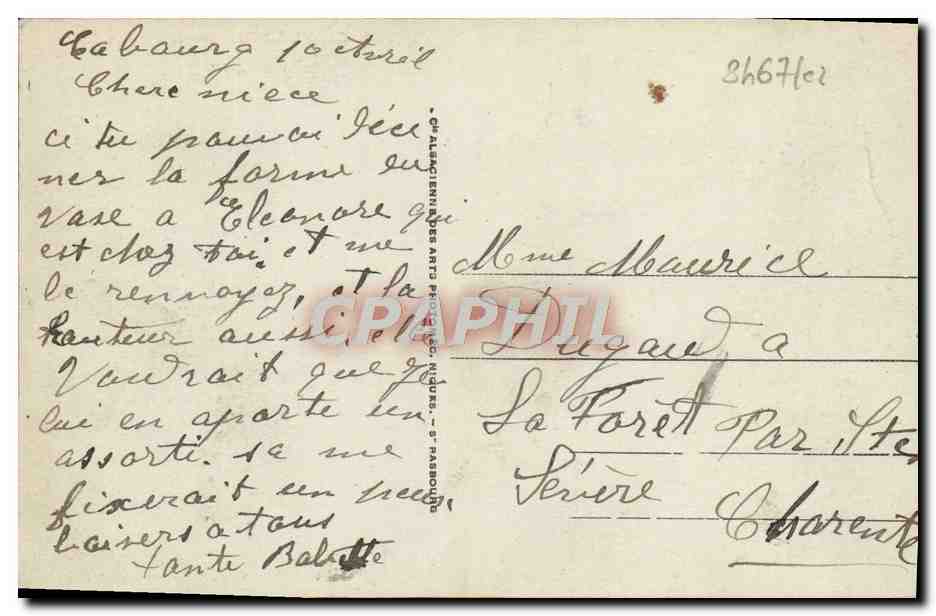 Cabourg 10 avril
Chere niece
ci tu pouvai déci
ner la forme du
vase a la Eleonore qui
est chez toi, et me
le rennoyez, et la
hauteur aussi, elle
Voudrait que je
lui en aporte un
assorti. sa me
fixerait un peux,
baisers a tous
tante Babette
- Cie ALSACIENNE DES ARTS PHOTOMÉCANIQUES. - STRASBOURG
8h67/e2
Mme Maurice
Dugaud a
La Forêt Par Ste
Sévère
Charente
CPAPHIL